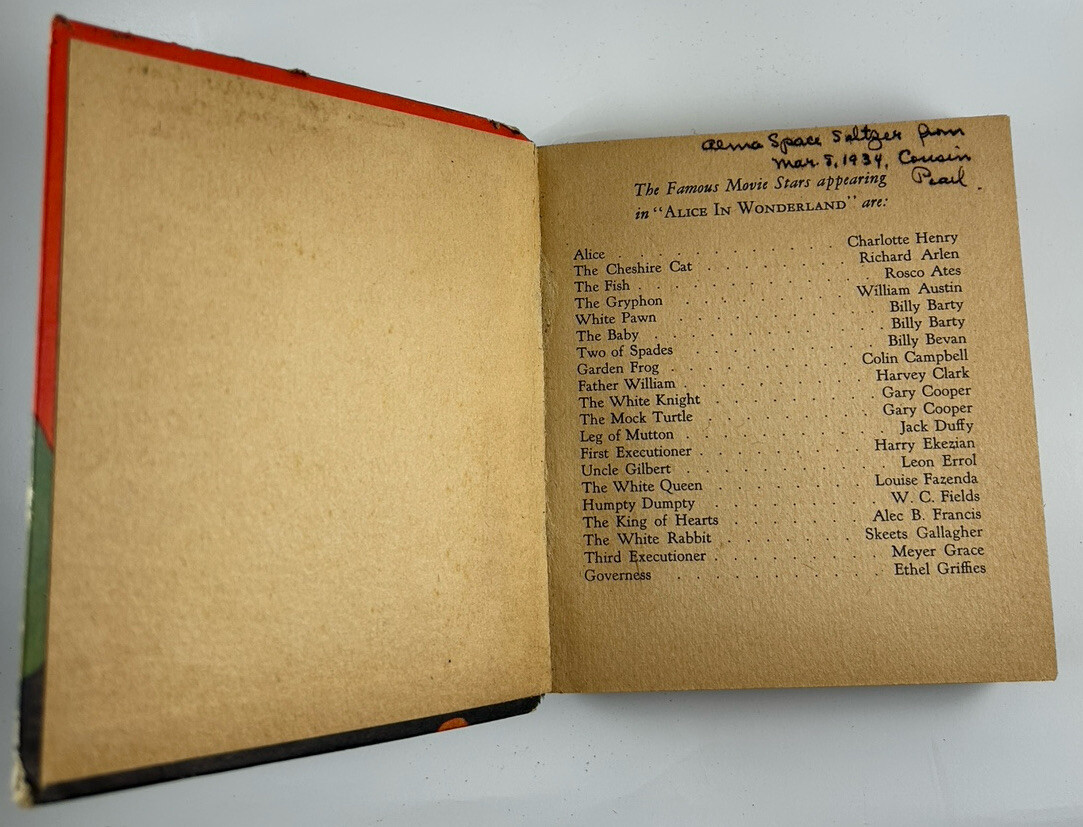 Alma Space Seltzer from
Mar. 5, 1934, Cousin
Pearl.
The Famous Movie Stars appearing
in "ALICE IN WONDERLAND" are:
Alice . . . . . . . . . Charlotte Henry
The Cheshire Cat . . . . . . . Richard Arlen
The Fish . . . . . . . . . Rosco Ates
The Gryphon . . . . . . . William Austin
White Pawn . . . . . . . . Billy Barty
The Baby . . . . . . . . . Billy Barty
Two of Spades . . . . . . . . Billy Bevan
Garden Frog . . . . . . . Colin Campbell
Father William . . . . . . . Harvey Clark
The White Knight . . . . . . Gary Cooper
The Mock Turtle . . . . . . . Gary Cooper
Leg of Mutton . . . . . . . . Jack Duffy
First Executioner . . . . . . . Harry Ekezian
Uncle Gilbert . . . . . . . . Leon Errol
The White Queen . . . . . . Louise Fazenda
Humpty Dumpty . . . . . . . W. C. Fields
The King of Hearts . . . . . . Alec B. Francis
The White Rabbit . . . . . . Skeets Gallagher
Third Executioner . . . . . . . Meyer Grace
Governess . . . . . . . . Ethel Griffies